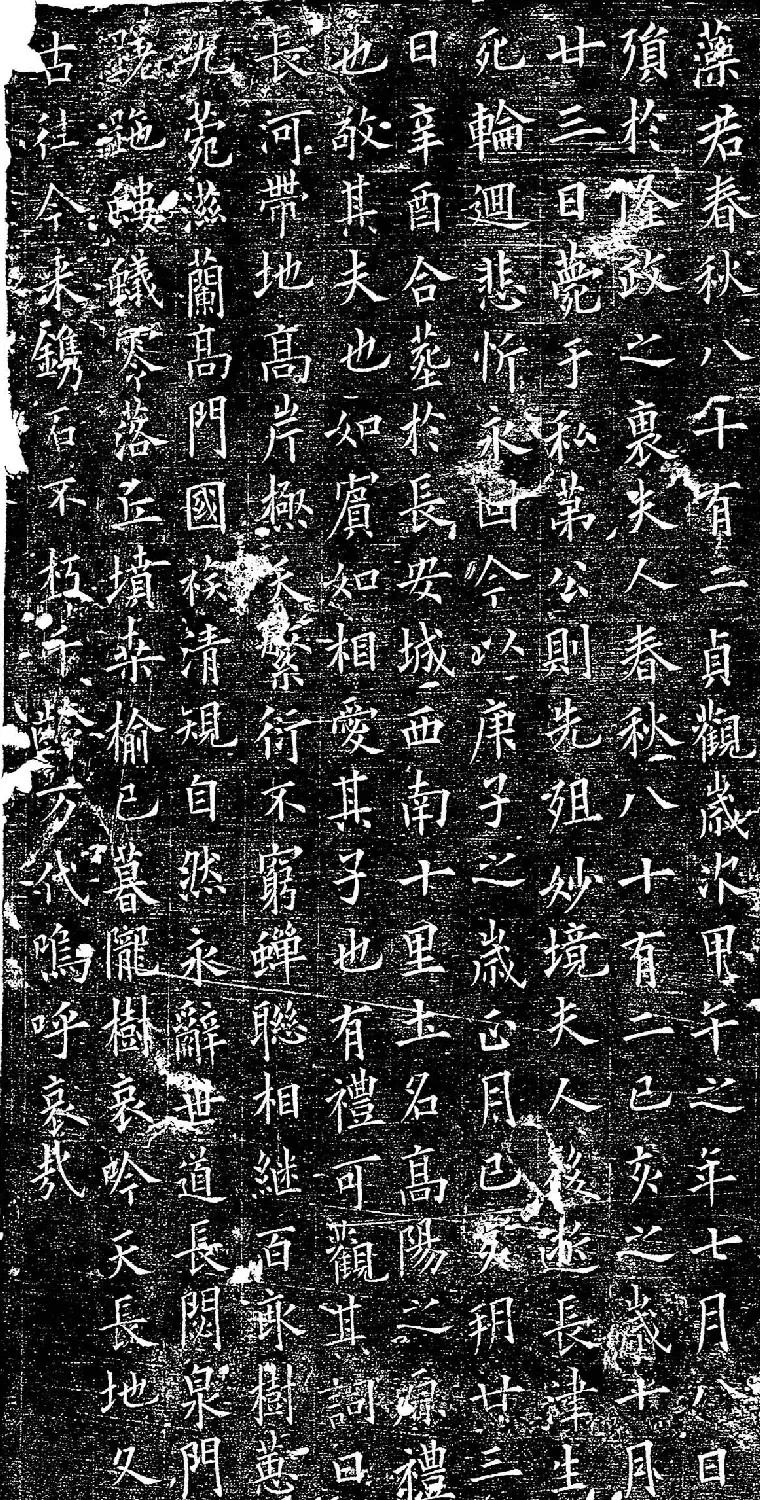 藻君春秋八十有二貞觀歲次甲午之年七月八日
殞於隆政之裏夫人春秋八十有二已亥之歲十月
廿三日薨于私第公則先殂妙境夫人後逝長津生
死輪迴悲忻永今以庚子之歲正月已亥朔廿三
日辛酉合葬於長安城西南十里土名高陽之原禮
也敬其夫也如賓如相愛其子也有禮可觀其詞曰
長河帶地高岸極天繁衍不窮蟬聯相継百畝樹蕙
九菀滋蘭高門國族清規自然永辭世道長閟泉門
蹉跎螻蟻零落丘墳桒榆已暮隴樹哀吟天長地久
古往今来鐫石不朽千齡万代嗚呼哀哉